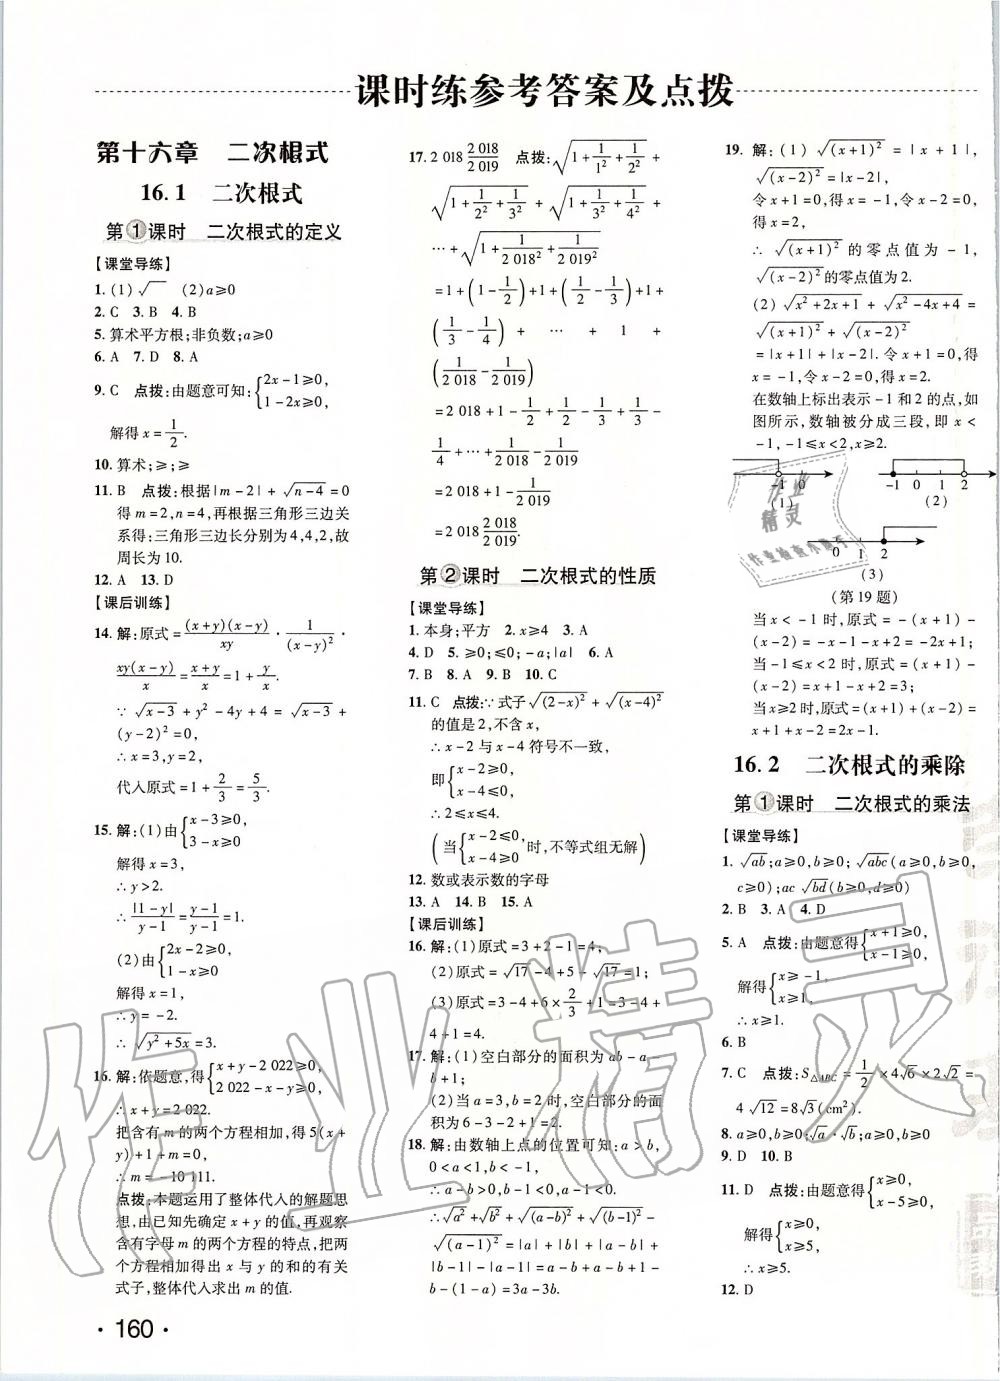 课时练参考答案及点拨
第十六章 二次根式
16.1 二次根式
第1课时 二次根式的定义
【课堂导练】
1. (1) √‾ (2) a≥0
2. C 3. B 4. B
5. 算术平方根;非负数;a≥0
6. A 7. D 8. A
9. C 点拨:由题意可知:{2x-1≥0, 1-2x≥0,
解得 x=1/2.
10. 算术;≥;≥
11. B 点拨:根据|m-2|+√(n-4)=0
得 m=2,n=4,再根据三角形三边关
系得:三角形三边长分别为4,4,2,故
周长为10.
12. A 13. D
【课后训练】
14. 解:原式=(x+y)(x-y)/xy · 1/(x-y)² ·
xy(x-y)/x=(x+y)/x=1+y/x.
∵ √(x-3)+y²-4y+4=√(x-3)+
(y-2)²=0,
∴x=3,y=2,
代入原式=1+2/3=5/3.
15. 解:(1)由{x-3≥0, 3-x≥0
解得 x=3,
∴y>2.
∴|1-y|/(y-1)=(y-1)/(y-1)=1.
(2)由{2x-2≥0, 1-x≥0
解得 x=1,
∴y=-2.
∴√(y²+5x)=3.
16. 解:依题意,得{x+y-2 022≥0, 2 022-x-y≥0,
∴x+y=2 022.
把含有 m 的两个方程相加,得5(x+
y)+1+m=0,
∴m=-10 111.
点拨:本题运用了整体代入的解题思
想,由已知先确定 x+y 的值,再观察
含有字母 m 的两个方程的特点,把两
个方程相加得出 x 与 y 的和的有关
式子,整体代入求出 m 的值.
17. 2 018 2 018/2 019 点拨:√(1+1/1²+1/2²)+
√(1+1/2²+1/3²)+√(1+1/3²+1/4²)+
…+√(1+1/2 018²+1/2 019²)
=1+(1-1/2)+1+(1/2-1/3)+1+
(1/3-1/4)+…+1+
(1/2 018-1/2 019)
=2 018+1-1/2+1/2-1/3+1/3-
1/4+…+1/2 018-1/2 019
=2 018+1-1/2 019
=2 018 2 018/2 019.
第2课时 二次根式的性质
【课堂导练】
1. 本身;平方 2. x≥4 3. A
4. D 5. ≥0;≤0;-a;|a| 6. A
7. B 8. A 9. B 10. C
11. C 点拨:∵式子√(2-x)²+√(x-4)²
的值是2,不含 x,
∴x-2 与 x-4 符号不一致,
即{x-2≥0, x-4≤0,
∴2≤x≤4.
(当{x-2≤0, x-4≥0 时,不等式组无解)
12. 数或表示数的字母
13. A 14. B 15. A
【课后训练】
16. 解:(1)原式=3+2-1=4;
(2)原式=√17-4+5-√17=1;
(3)原式=3-4+6×2/3+1=3-4+
4+1=4.
17. 解:(1)空白部分的面积为 ab-a-
b+1.
(2)当 a=3,b=2时,空白部分的面
积为 6-3-2+1=2.
18. 解:由数轴上点的位置可知:a>b,
0<a<1,b<-1,
∴a-b>0,b-1<0,a-1<0.
∴√a²+√b²+√(a-b)²+√(b-1)²-
√(a-1)²=|a|+|b|+|a-b|+
|b-1|-|a-1|=a-b+a-b+1-
b-(1-a)=3a-3b.
19. 解:(1) √(x+1)²=|x+1|,
√(x-2)²=|x-2|,
令 x+1=0,得 x=-1,令 x-2=0,
得 x=2,
∴√(x+1)² 的零点值为-1,
√(x-2)² 的零点值为2.
(2)√(x²+2x+1)+√(x²-4x+4)=
√(x+1)²+√(x-2)²
=|x+1|+|x-2|. 令 x+1=0,得
x=-1,令 x-2=0,得 x=2.
在数轴上标出表示-1和2的点,如
图所示,数轴被分成三段,即 x<
-1,-1≤x<2,x≥2.
-1 0
(1)
-1 0 1 2
(2)
0 1 2
(3)
(第19题)
当 x<-1时,原式=-(x+1)-
(x-2)=-x-1-x+2=-2x+1;
当-1≤x<2时,原式=(x+1)-
(x-2)=x+1-x+2=3;
当x≥2时,原式=(x+1)+(x-2)=
x+1+x-2=2x-1.
16.2 二次根式的乘除
第1课时 二次根式的乘法
【课堂导练】
1. √ab;a≥0,b≥0;√abc(a≥0,b≥0,
c≥0);ac√bd(b≥0,d≥0)
2. B 3. A 4. D
5. A 点拨:由题意得{x+1≥0, x-1≥0,
解得{x≥-1, x≥1.
∴x≥1.
6. B
7. C 点拨:S△ABC=1/2×4√6×2√2=
4√12=8√3(cm²).
8. a≥0,b≥0;√a·√b;a≥0,b≥0
9. D 10. B
11. D 点拨:由题意得{x≥0, x-5≥0,
解得{x≥0, x≥5.
∴x≥5.
12. D
·160·
作业精灵
作业
精灵
作业检查小助手